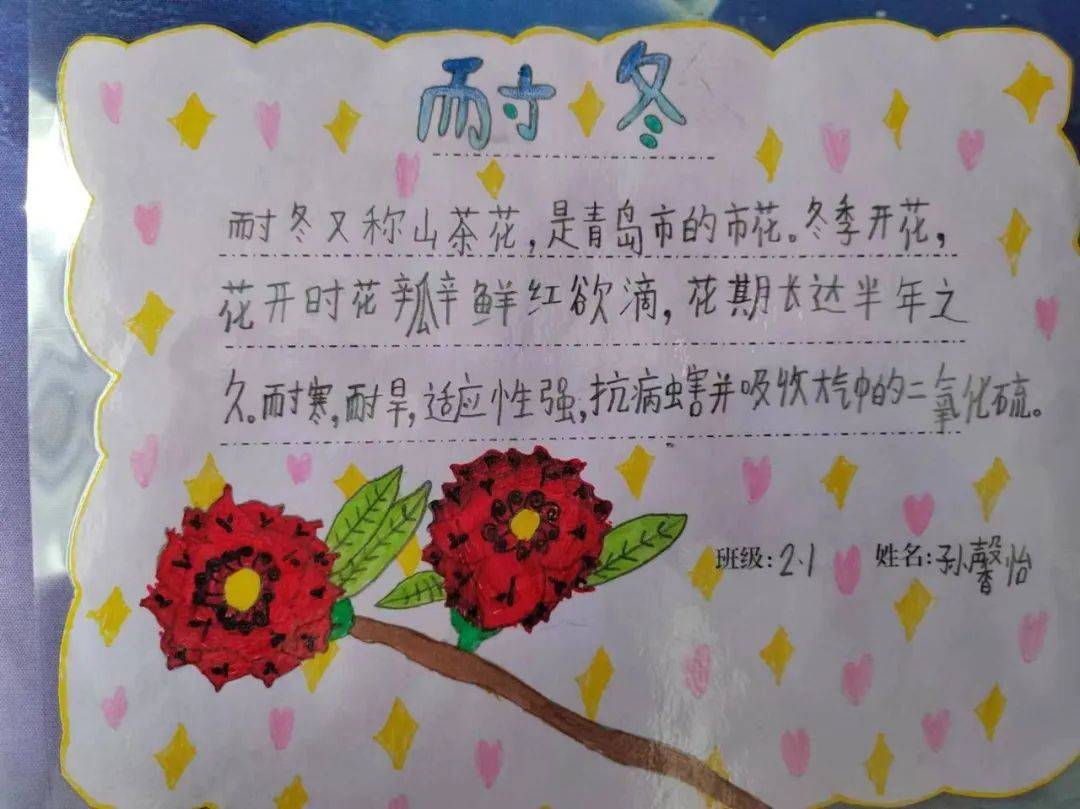 耐冬
耐冬又称山茶花,是青岛市的市花。冬季开花,
花开时花瓣鲜红欲滴,花期长达半年之
久。耐寒,耐旱,适应性强,抗病虫害并吸收大气中的二氧化硫。
班级:2.1 姓名:孙馨怡